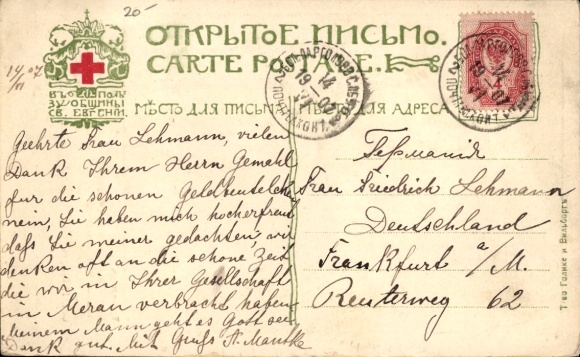 20-
ОТКРЫТОЕ ПИСЬМО.
CARTE POSTALE.
14/VI 07
ВЪ ПОЛЬ
ЗУ ОБЩИНЫ
СВ. ЕВГЕНІИ.
МѢСТО ДЛЯ ПИСЬМА
МѢСТО ДЛЯ АДРЕСА
14
19 07
14
19 07
Geehrte Frau Lehmann, vielen
Dank Ihrem Herrn Gemahl
fur die schonen Geldbeutelche
nein, Sie haben mich hocherfreut
daß Sie meiner gedachten, wir
denken oft an die schone Zeit
die wir in Ihrer Gesellschaft
in Meran verbracht haben
meinem Mann geht es Gott sei
Dank gut. Mit Gruß
Германія
Frau Friedrich Lehmann
Deutschland
Frankfurt a/M.
Reuterweg 62
Т-во Голике и Вильборгъ